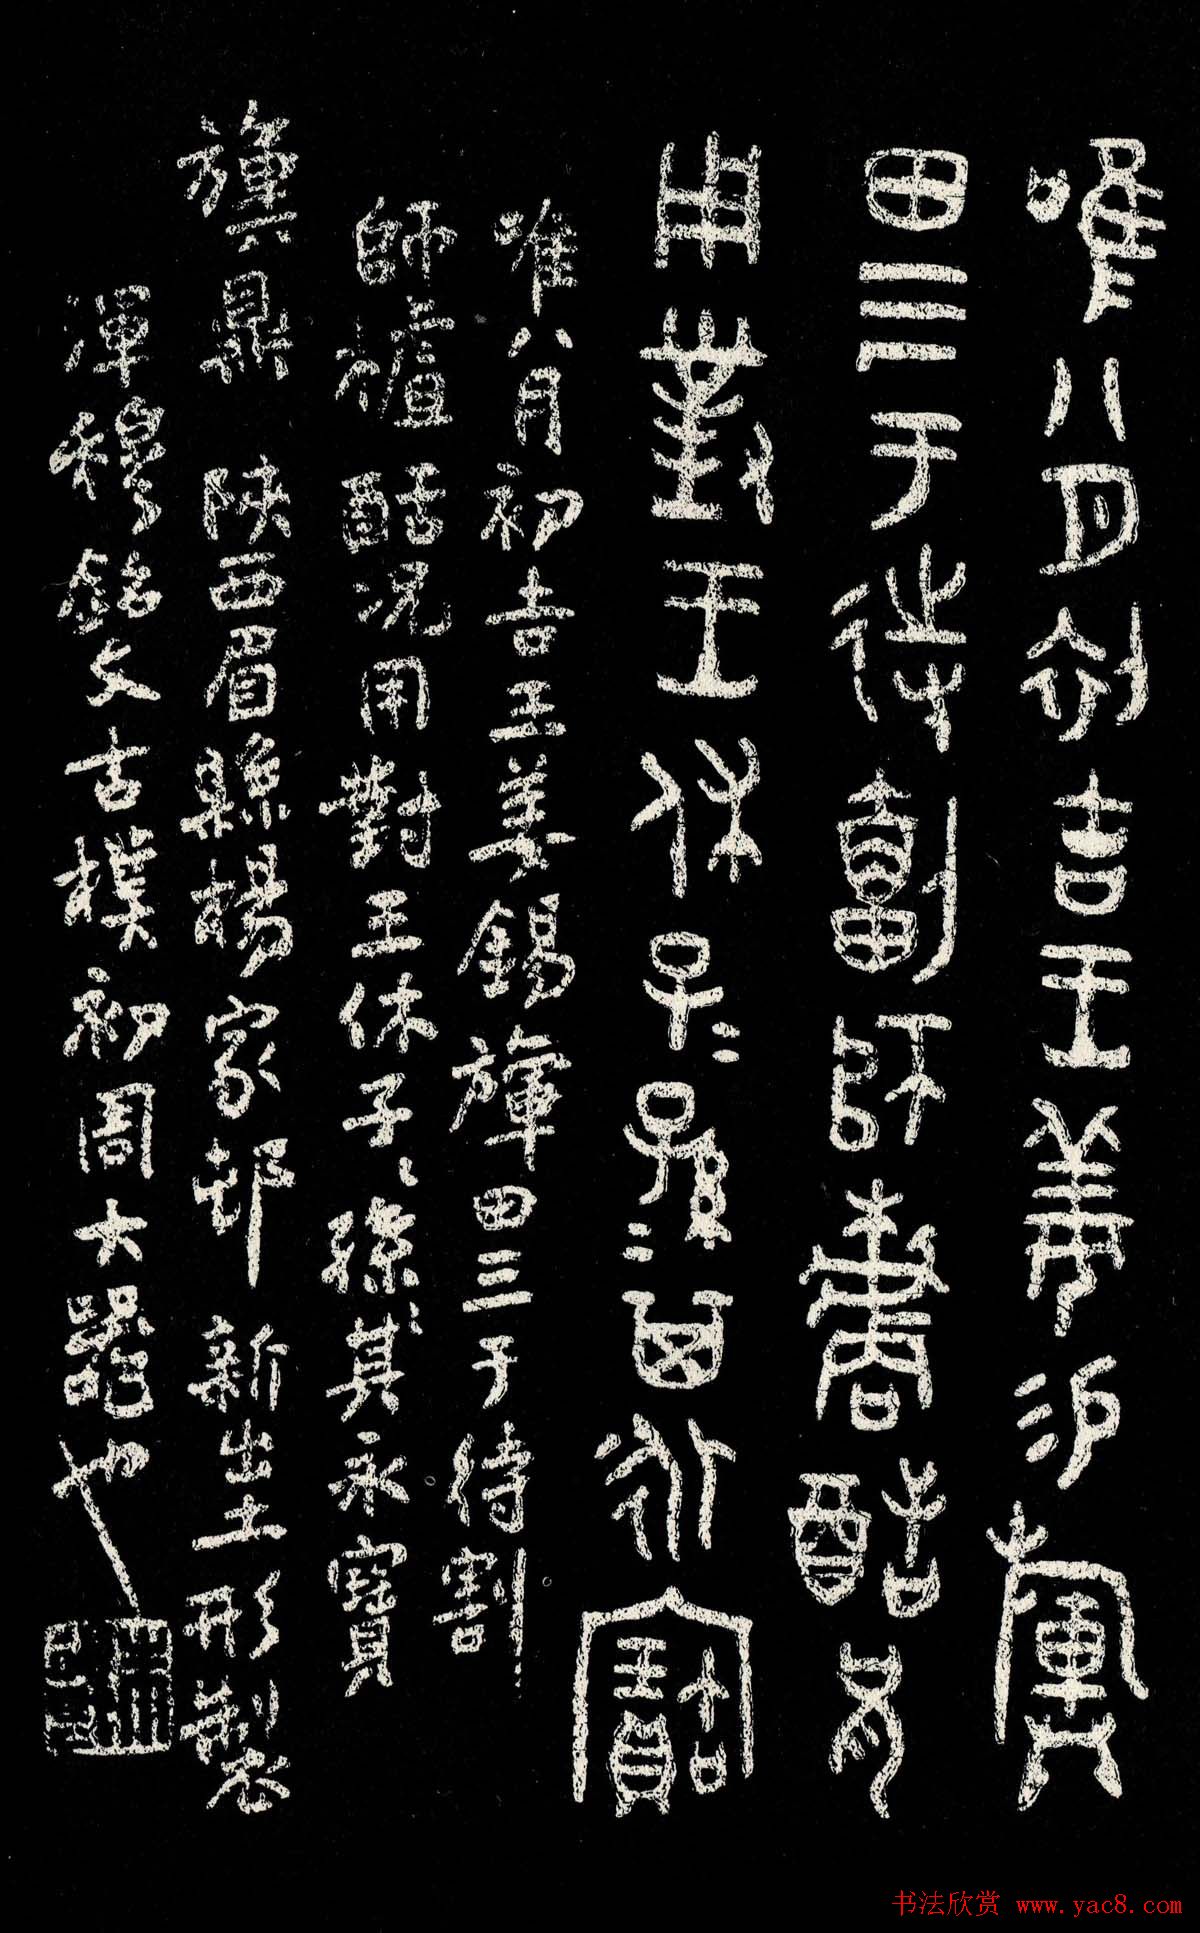 唯八月初吉王姜易旟
田三于待劃師楷酤兄
用對王休子=孫=其永寶
唯八月初吉王姜錫旟田三于待割
師櫨酤況用對王休子〻孫〻其永寶
旟鼎 陝西眉縣楊家邨 新出土形製
渾穆銘文古樸初周大器也
书法欣赏 www.yac8.com